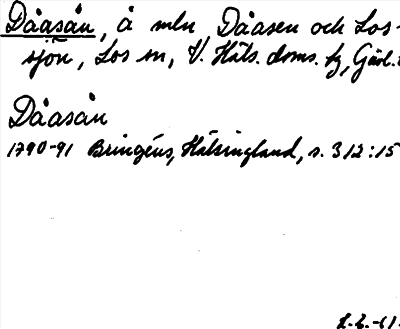 Dåasån, å mln Dåasen och Los-
sjön, Los sn, V. Häls. doms. hg, Gävl.
Dåasån
1790-91 Bringéus, Hälsingland, s. 312:15